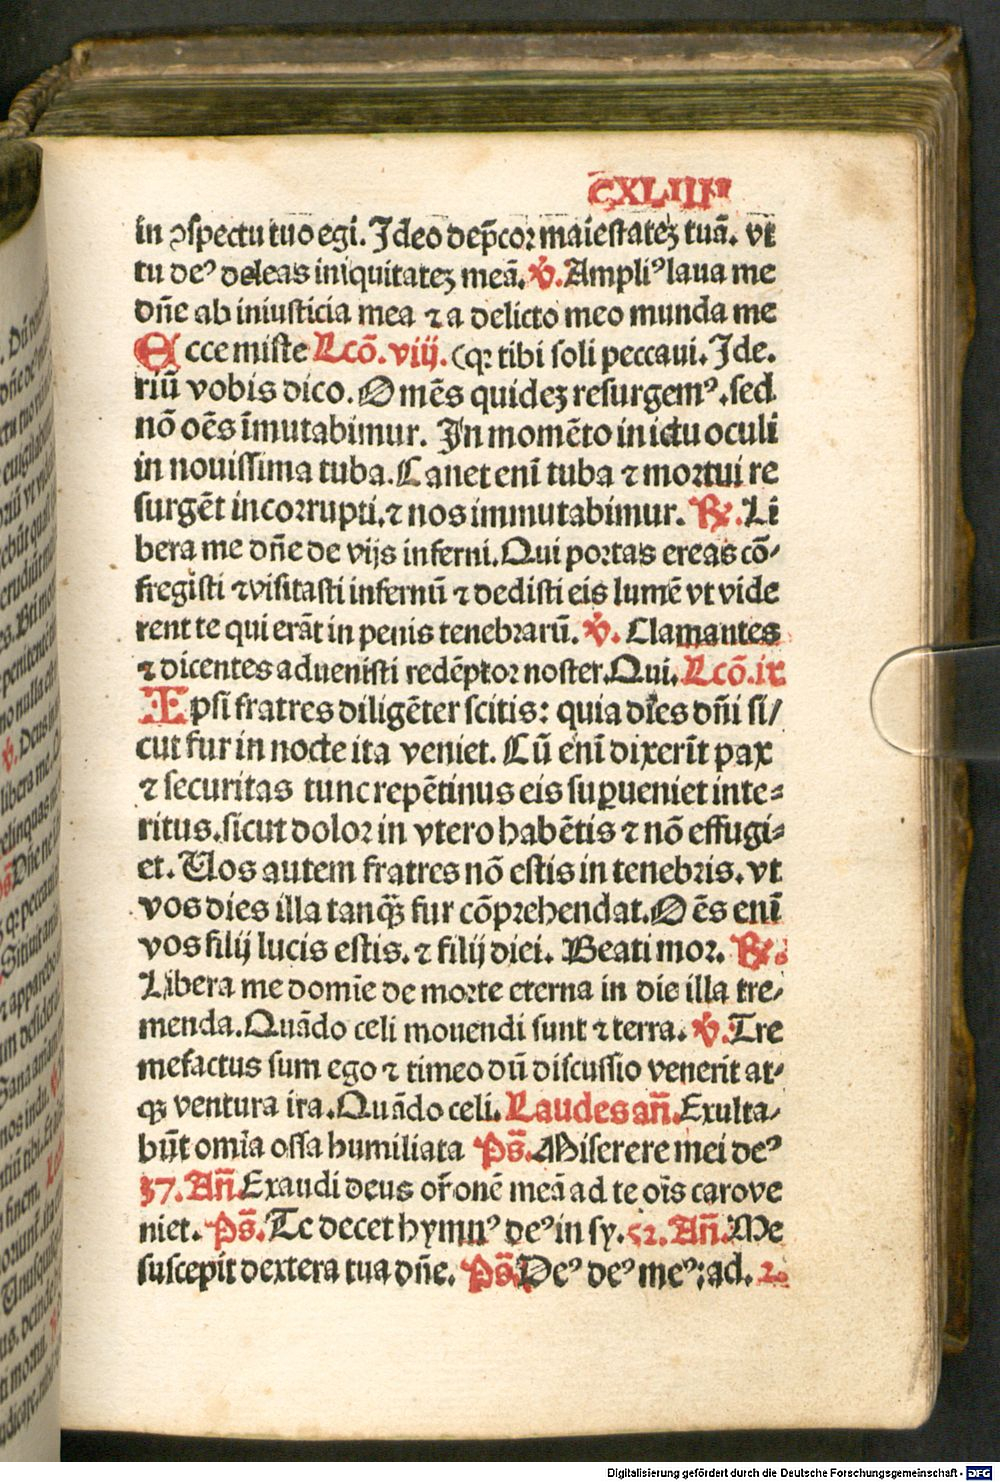 CXLIIII
in ꝯspectu tuo egi. Ideo dep̄cor maiestatez tuā. vt
tu deꝰ deleas iniquitatez meā. ℣. Ampliꝰ laua me
dn̄e ab iniusticia mea ⁊ a delicto meo munda me
Ecce miste Lcō. viij. (qꝛ tibi soli peccaui. Ide.
riū vobis dico. Omēs quidez resurgemꝰ. sed
nō oēs īmutabimur. In momēto in ictu oculi
in nouissima tuba. Canet enī tuba ⁊ mortui re
surgēt incorrupti. ⁊ nos immutabimur. ℞. Li
bera me dn̄e de vijs inferni. Qui portas ereas cō-
fregisti ⁊ visitasti infernū ⁊ dedisti eis lumē vt vide
rent te qui erāt in penis tenebrarū. ℣. Clamantes
⁊ dicentes aduenisti redēptor noster. Qui. Lcō. ix
Ipsi fratres diligēter scitis: quia dies dn̄i si/
cut fur in nocte ita veniet. Cū enī dixerīt pax
⁊ securitas tunc repētinus eis suꝑueniet inte=
ritus. sicut dolor in vtero habētis ⁊ nō effugi=
et. Uos autem fratres nō estis in tenebris. vt
vos dies illa tanqȝ̄ fur cōprehendat. Oēs enī
vos filij lucis estis. ⁊ filij diei. Beati mor. ℞.
Libera me domīe de morte eterna in die illa tre/
menda. Quādo celi mouendi sunt ⁊ terra. ℣. Tre
mefactus sum ego ⁊ timeo dū discussio venerit at-
qȝ ventura ira. Quādo celi. Laudes an̄. Exulta/
būt omīa ossa humiliata Ps̄. Miserere mei deꝰ
37. An̄. Exaudi deus or̄onē meā ad te oīs caro ve
niet. Ps̄. Te decet hymnꝰ deꝰ in sy. 52. An̄. Me
suscepit dextera tua dn̄e. Ps̄. Deꝰ deꝰ meꝰ: ad. 2.
Digitalisierung gefördert durch die Deutsche Forschungsgemeinschaft - DFG